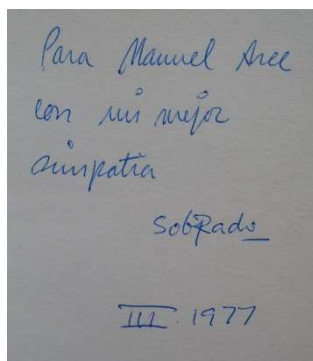 Para Manuel Arce
con mi mejor
simpatia
SobRado
III. 1977